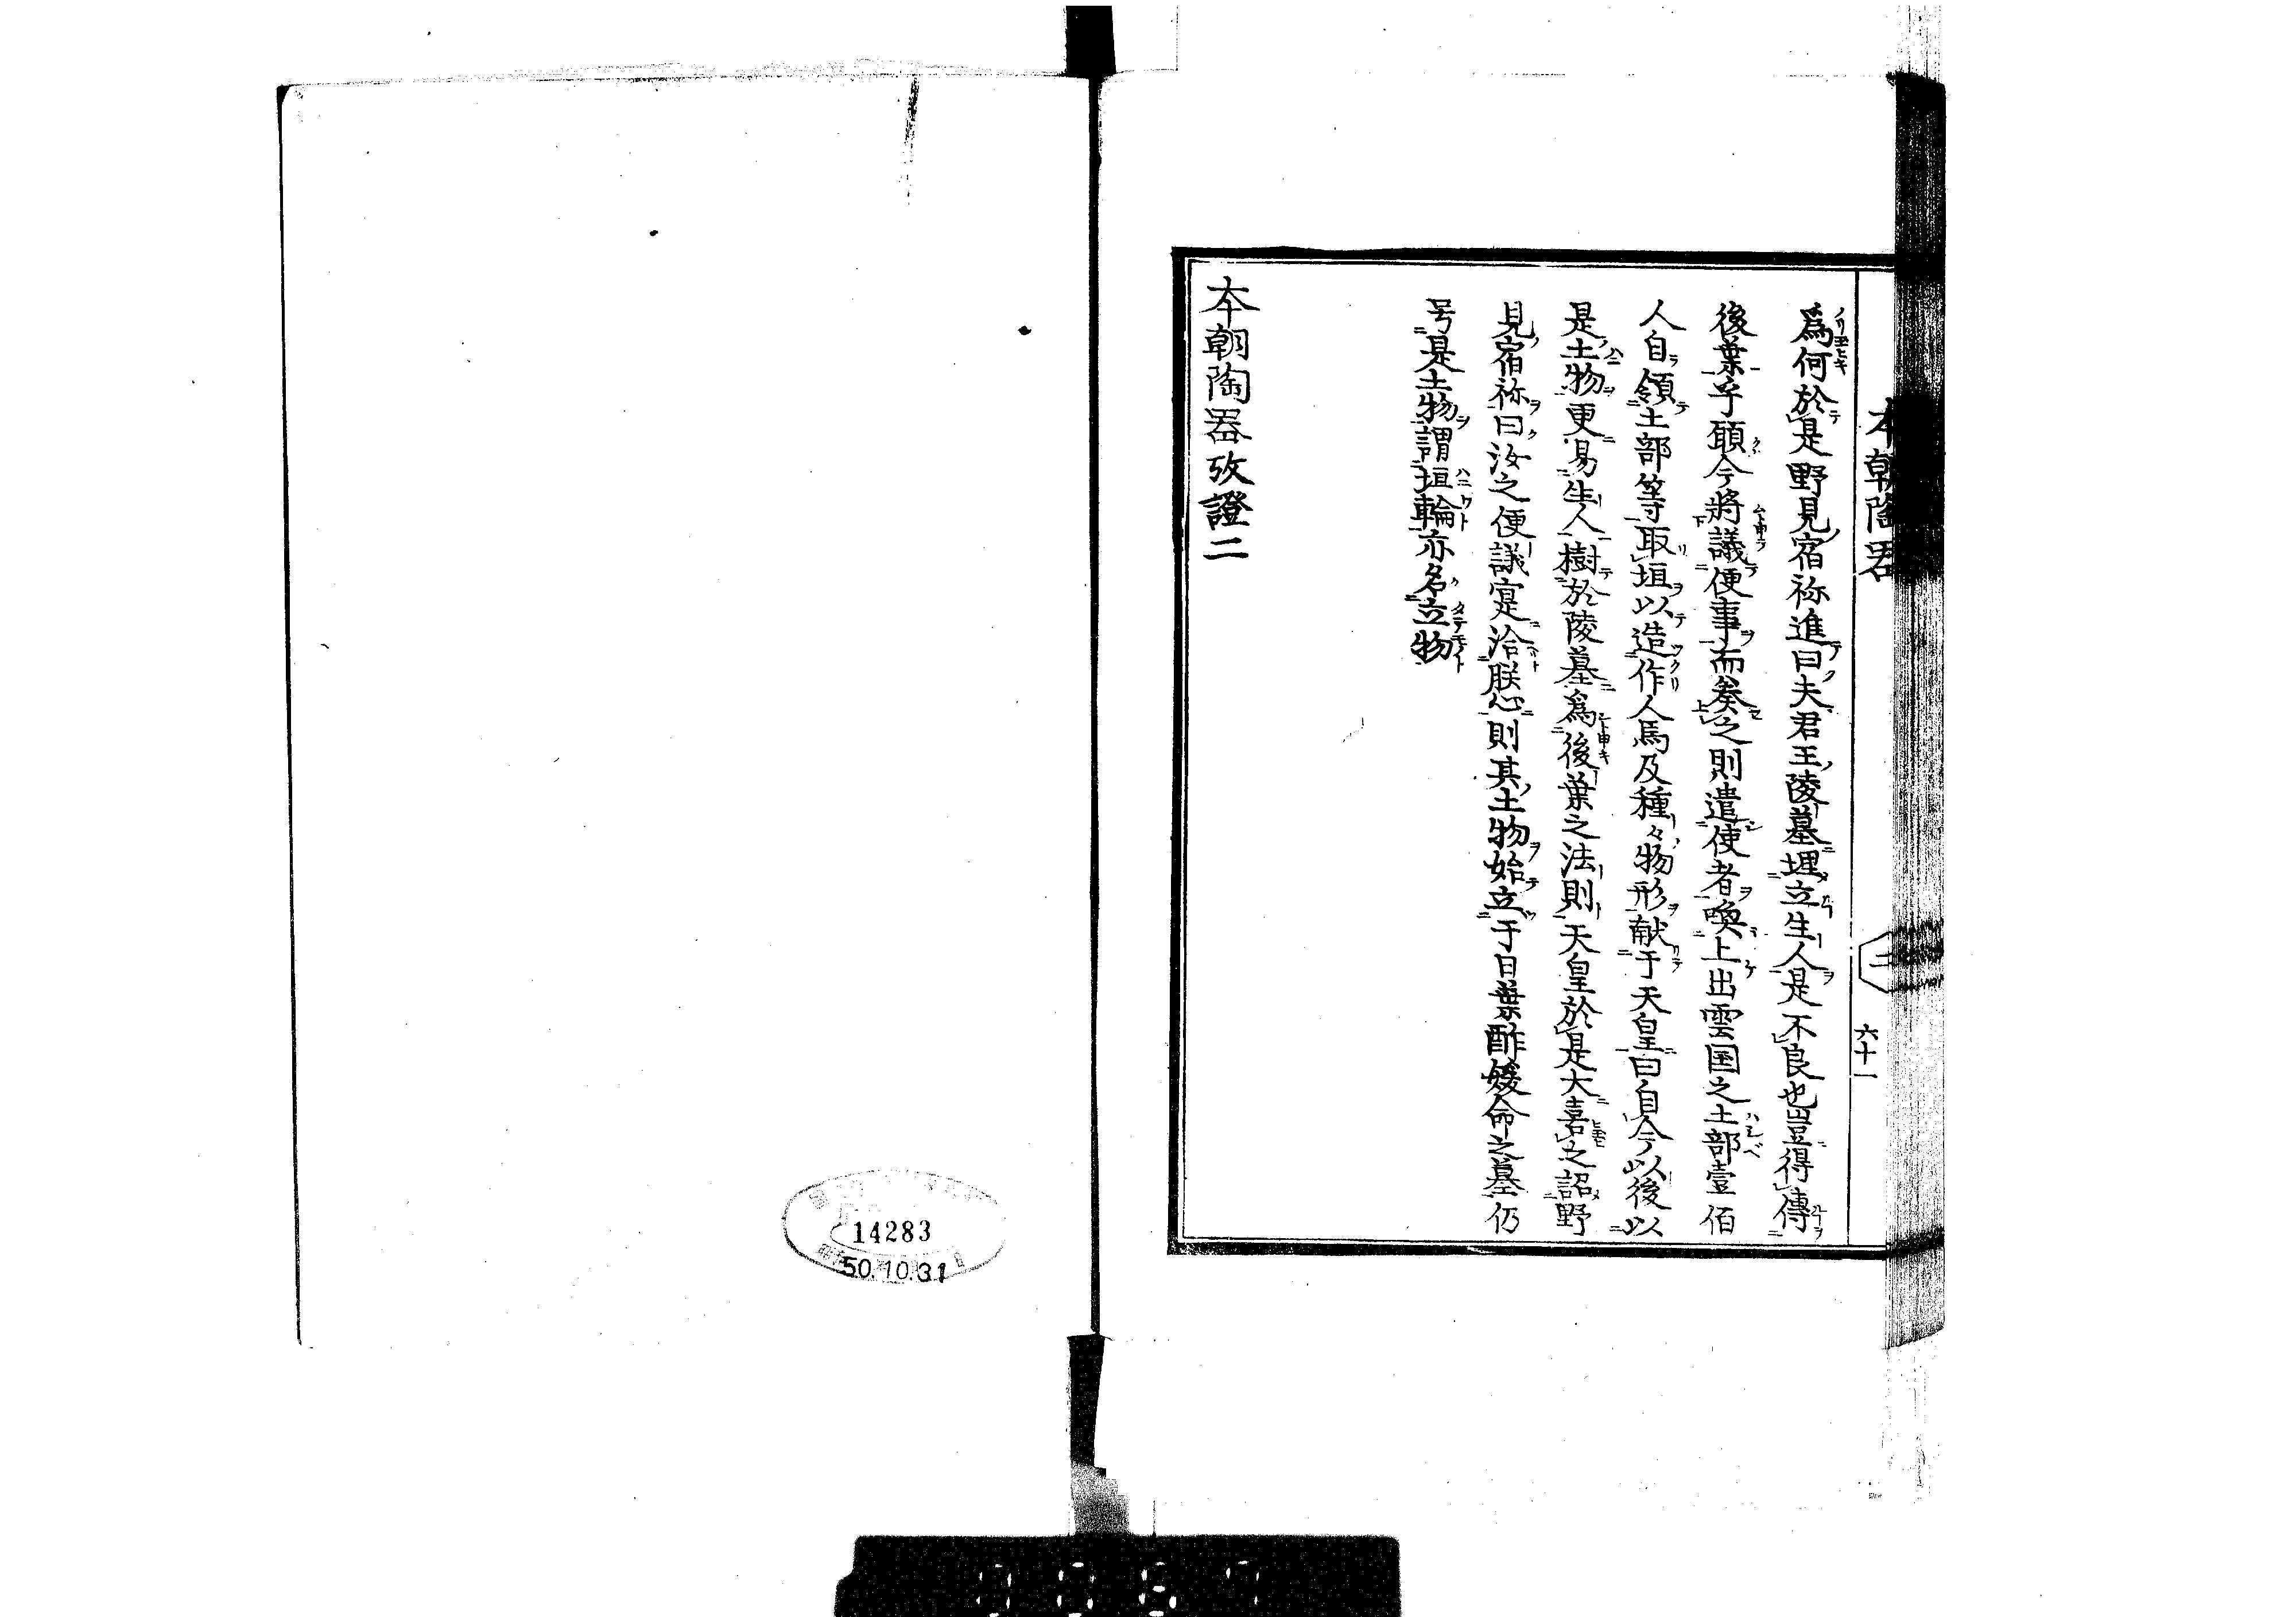 本朝陶器
二
六十一
爲何於是野見宿祢進曰夫君王陵墓埋立生人是不良也豈得傳
後葉乎願今將議便事而奏之則遣使者喚上出雲国之土部壹佰
人自領土部等取埴以造作人馬及種々物形献于天皇曰自今以後以
是土物更易生人樹於陵墓爲後葉之法則天皇於是大喜之詔野
見宿祢曰汝之便議寔洽朕心則其土物始立于日葉酢媛命之墓仍
号是土物謂埴輪亦名立物
本朝陶器攷證二
14283
50.10.31